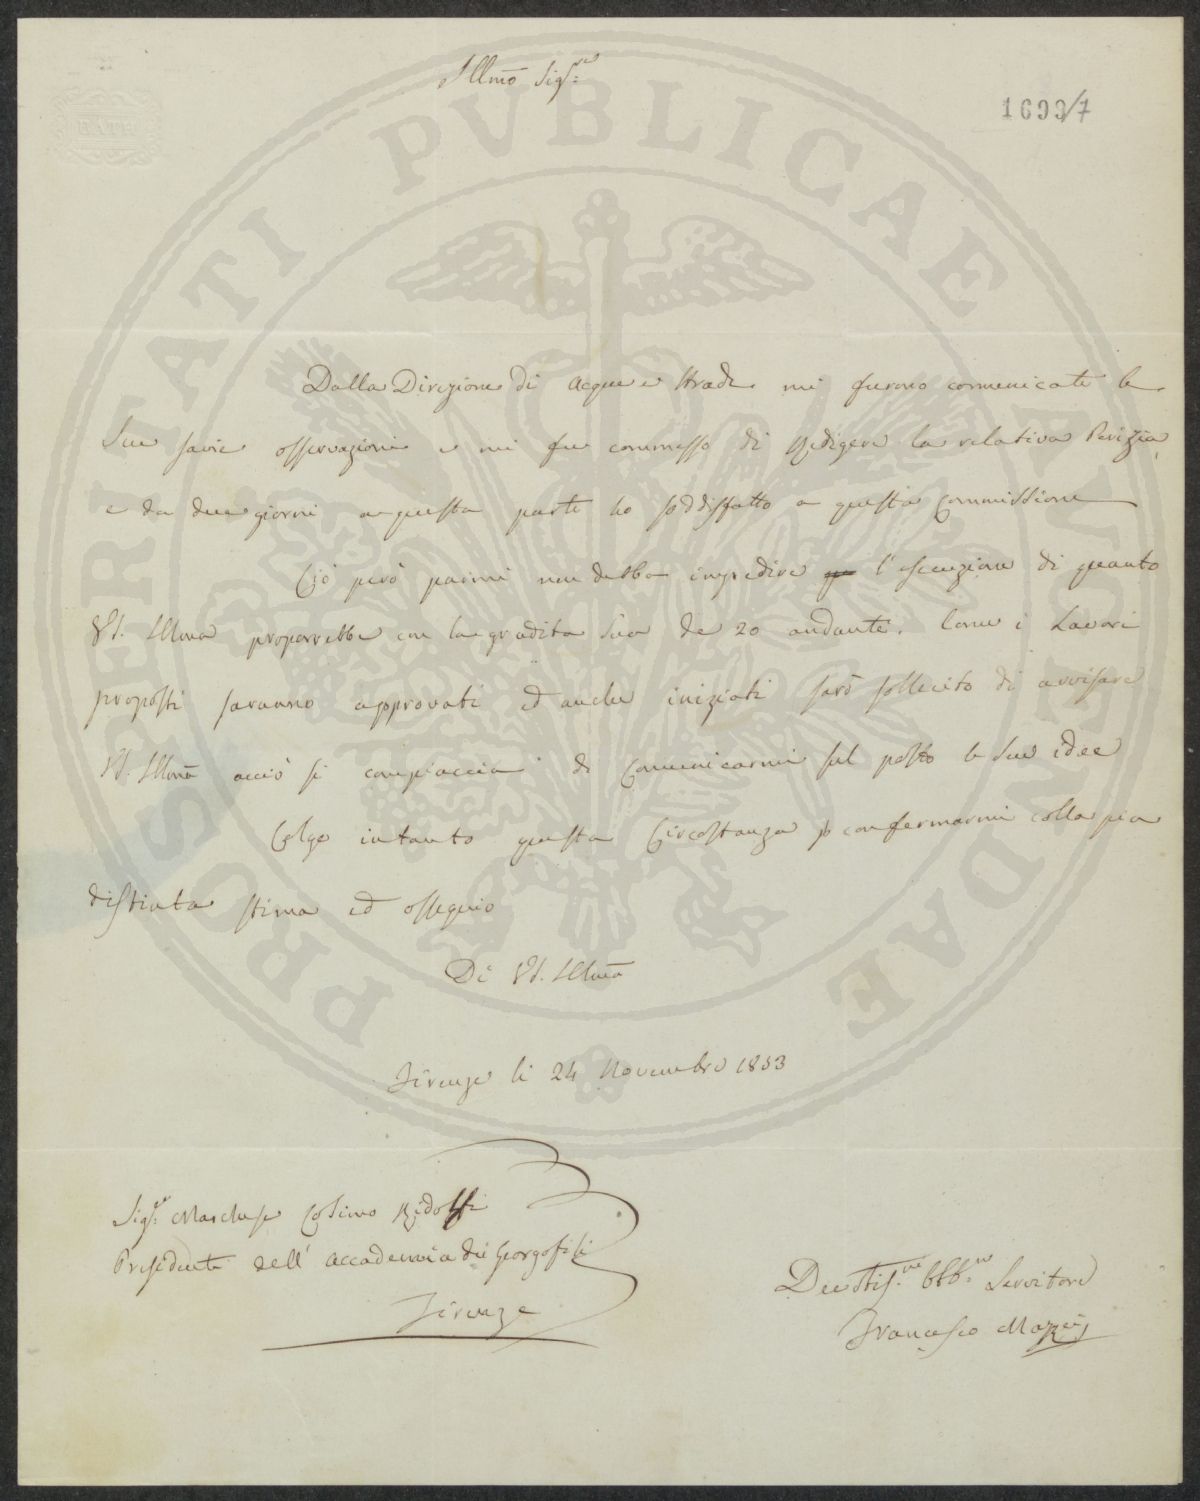 Illmo Sigre
1693/7
BATH
PROSPERITATI PVBLICAE AVGENDAE
Dalla Direzione di Acque e Strade mi furono comunicate le
Sue savie osservazioni e mi fu commesso di Redigere la relativa Perizia,
e da due giorni a questa parte ho soddisfatto a questa Commissione
Ciò però parmi non debba impedire l'esecuzione di quanto
VS. Illma proporrebbe con la gradita Sua de 20 andante. Come i Lavori
proposti saranno approvati ed anche iniziati sarò sollecito di avvisare
VS. Illma acciò si compiaccia di Comunicarmi sul posto le Sue idee
Colgo intanto questa Circostanza p confermarmi colla più
distinta stima ed ossequio
Di VS. Illma
Firenze li 24 Novembre 1853
Sigre Marchese Cosimo Ridolfi
Presidente dell' Accademia dei Georgofili
Firenze
Devotismo Obbmo Servitore
Francesco